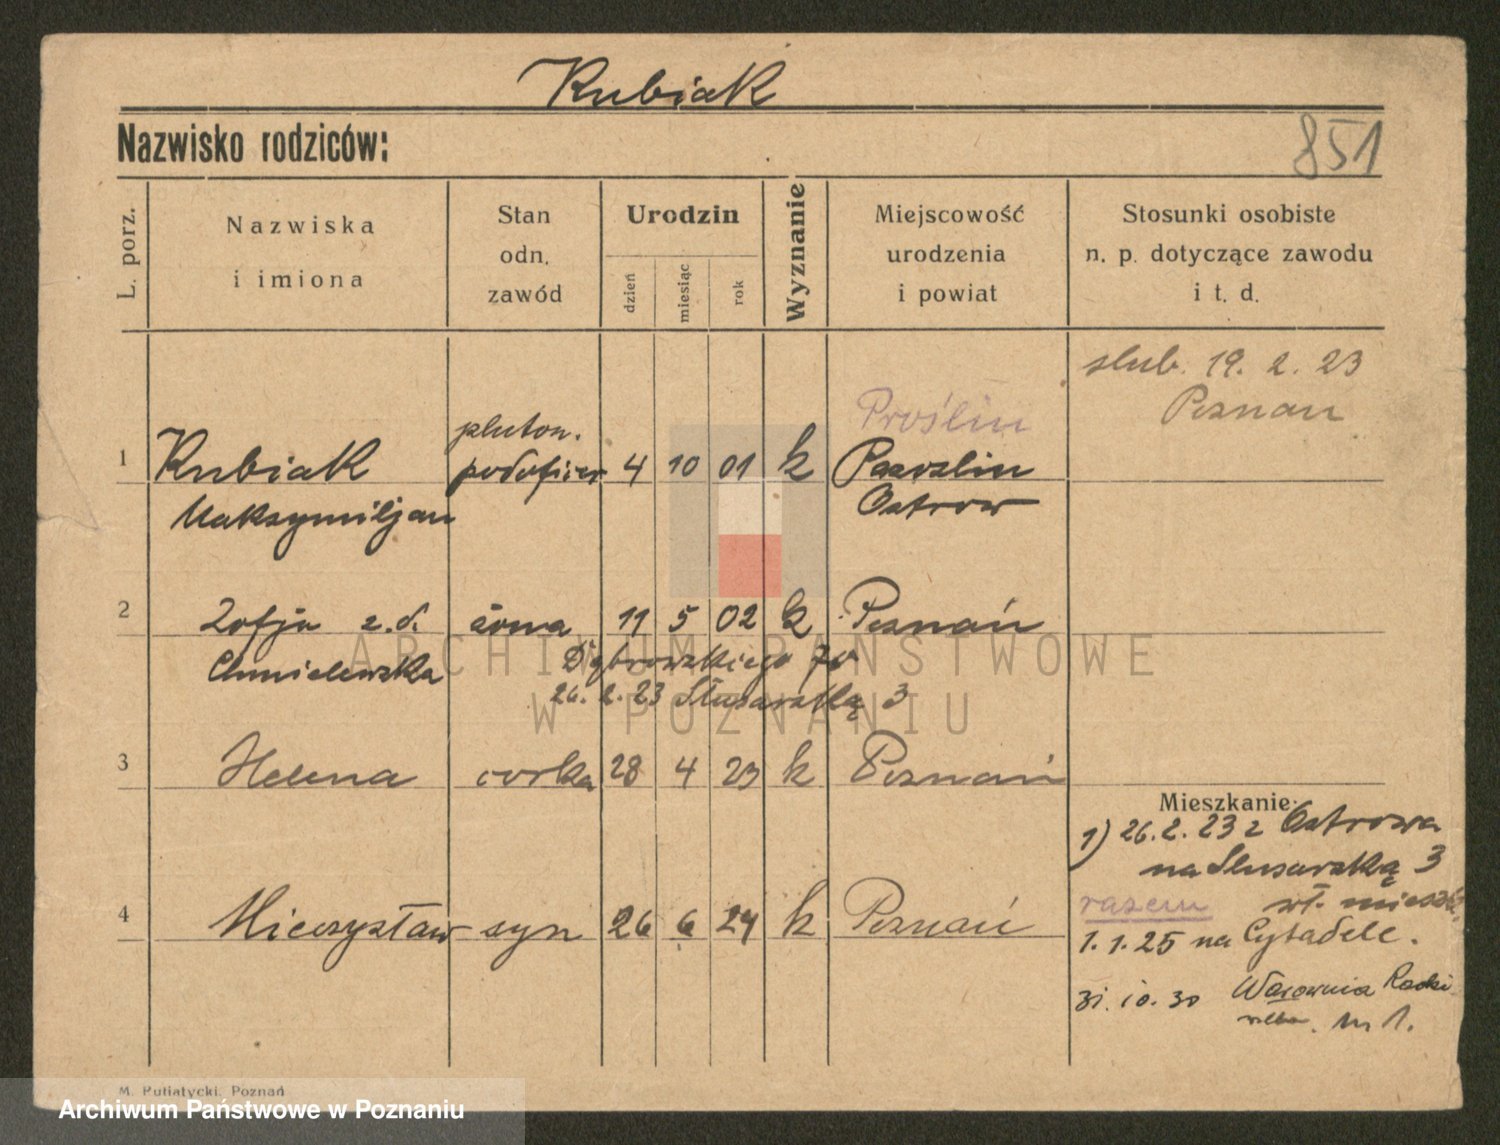 Kubiak
Nazwisko rodziców:
851
L. porz.
Nazwiska
i imiona
Stan
odn.
zawód
Urodzin
dzień
miesiąc
rok
Wyznanie
Miejscowość
urodzenia
i powiat
Stosunki osobiste
n. p. dotyczące zawodu
i t. d.
slub. 19. 2. 23
Poznan
Proślin
pluton.
1 Kubiak podoficer 4 10 01 k
Maksymiljan Ostrow
2 Zofja z. d. żona 11 5 02 k Poznań
Chmielewska Dąbrowskiego
26. 2. 23 Slusarską 3
3 Helena corka 28 4 23 k Poznań
Mieszkanie:
1) 26. 2. 23 z Ostrowa
na Slusarską 3
razem wł. mieszk.
4 Mieczysław syn 26 6 24 k Poznań
1. 1. 25 na Cytadele.
31. 10. 30 Warownia
m 1.
M. Putiatycki, Poznań
ARCHIWUM PAŃSTWOWE
W POZNANIU
Archiwum Państwowe w Poznaniu